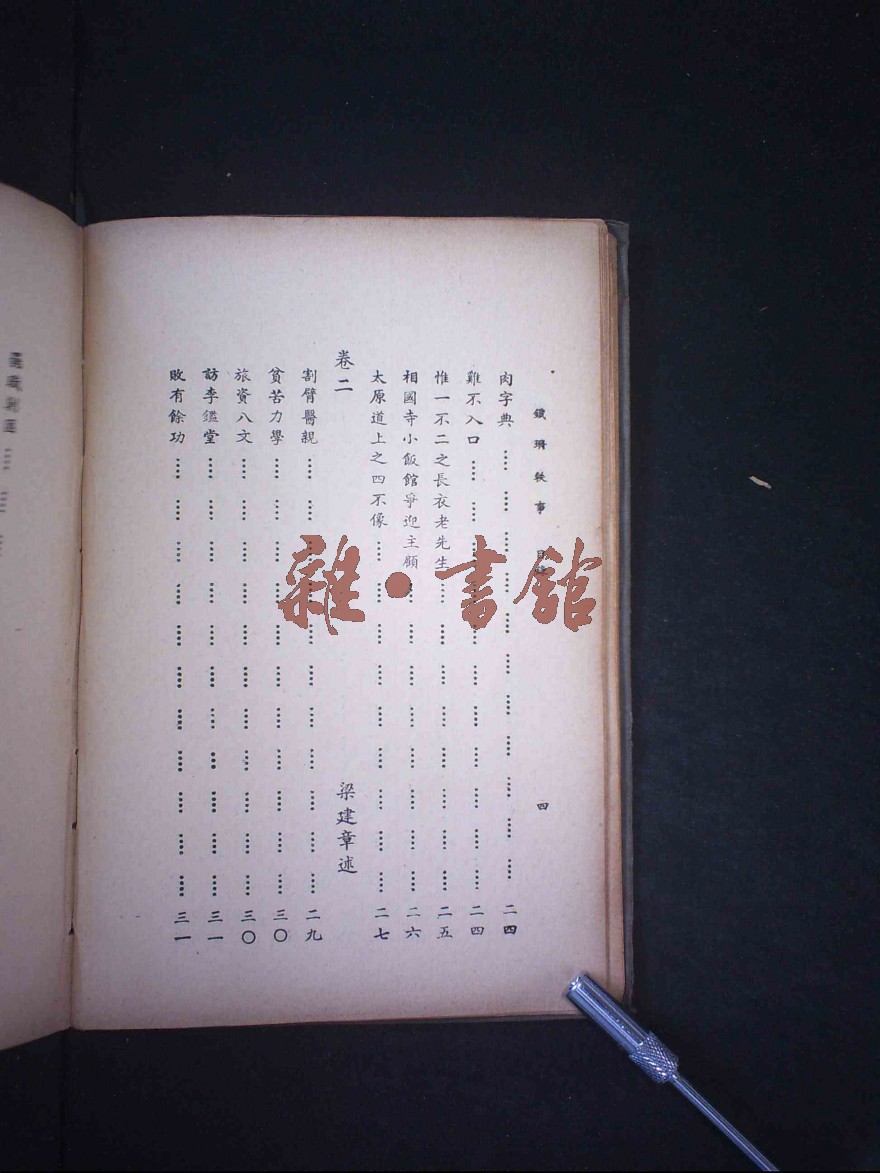 鐵珊軼事 目 四
肉字典 …… 二四
雞不入口 …… 二四
惟一不二之長衣老先生 …… 二五
相國寺小飯館爭迎主顧 …… 二六
太原道上之四不像 …… 二七
卷二 梁建章述
割臂醫親 …… 二九
貧苦力學 …… 三〇
旅資八文 …… 三〇
訪李鑑堂 …… 三一
敗有餘功 …… 三一
雜·書館